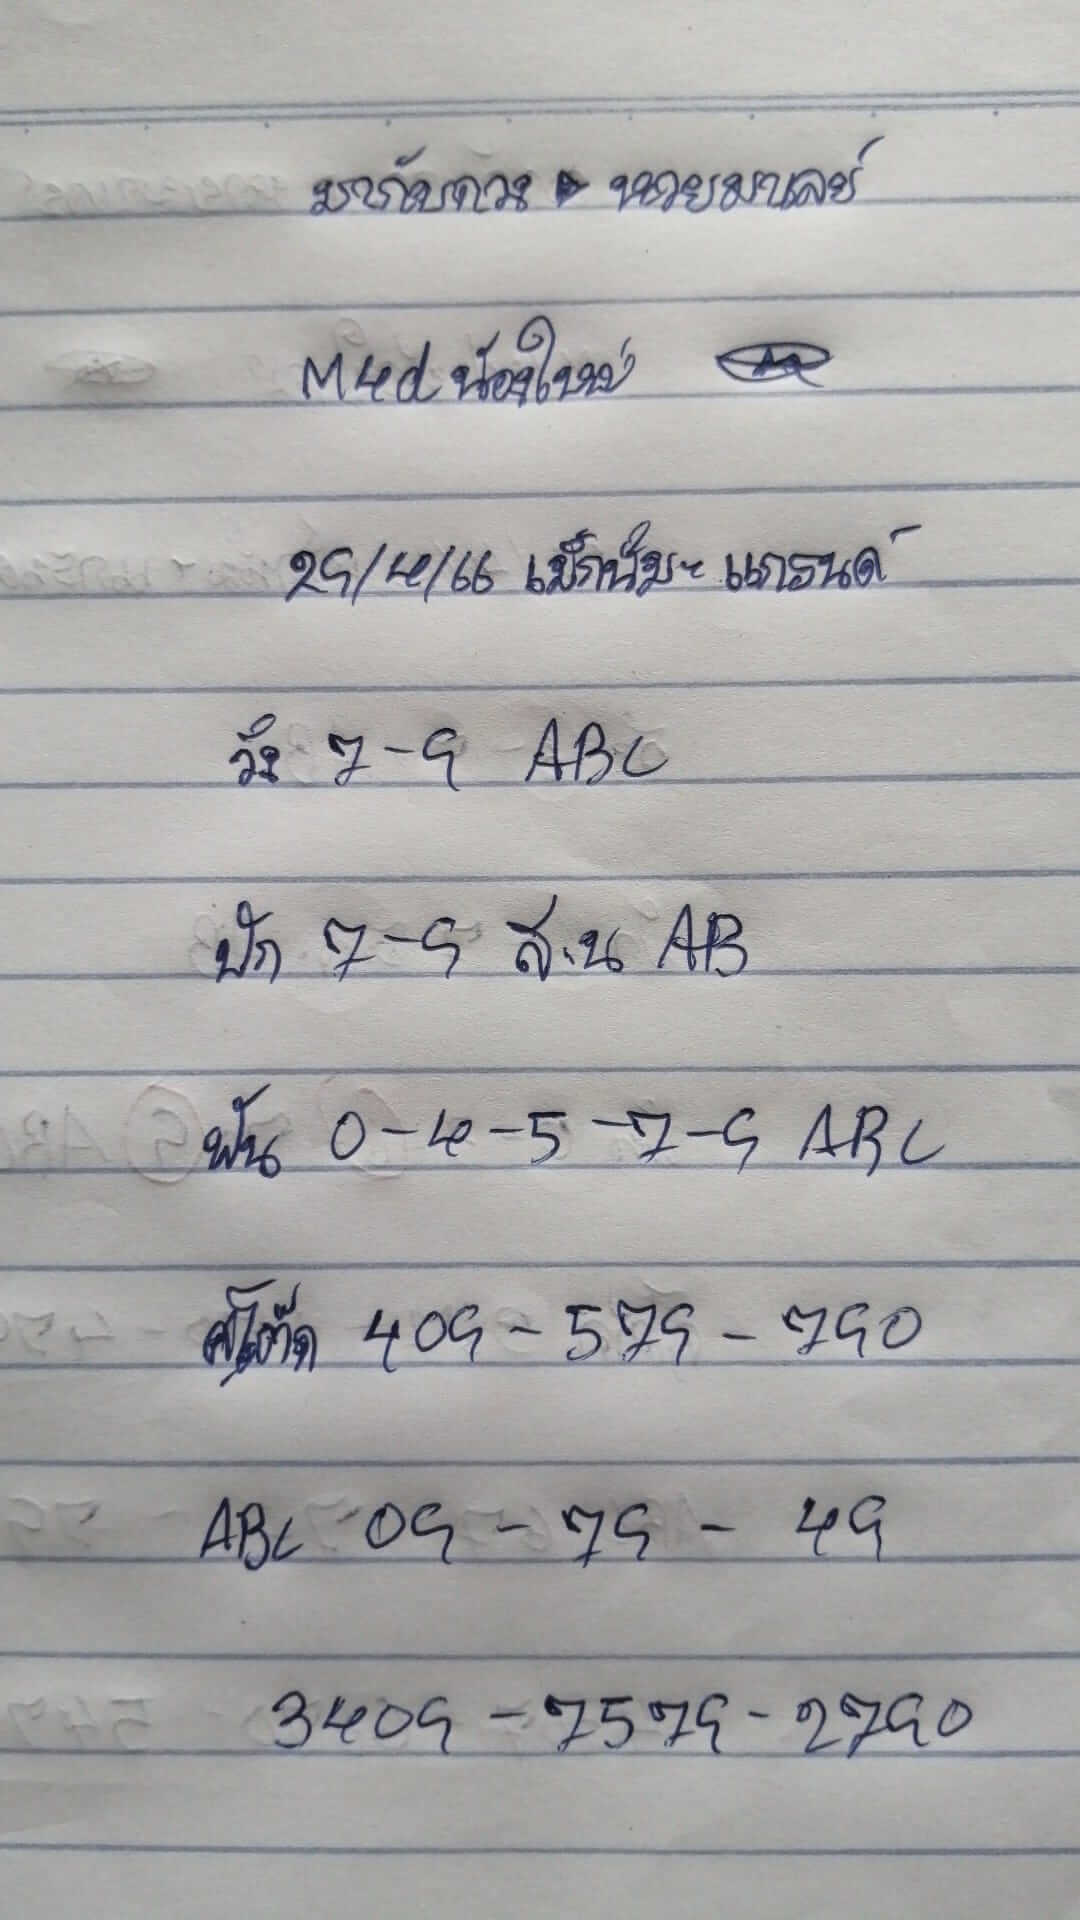 มากับดวง หวยมาเลย์
M4d น้องใหม่
29/4/66 แม็กนั่ม~ แกรนด์
วิ่ง 7-9 ABC
ปัก 7-9 ส.น AB
ฟัน 0-4-5-7-9 ABC
โต๊ด 409 - 579 - 790
ABC 09 - 79 - 49
3409 - 7579 - 2790